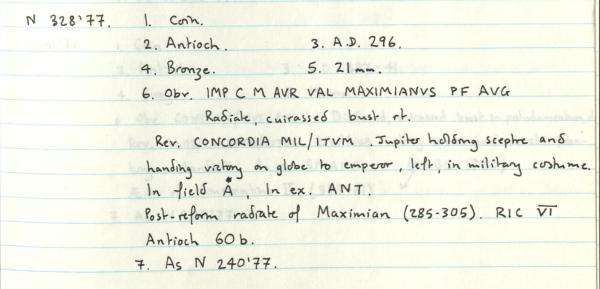 N 328'77. 1. Coin.
2. Antioch. 3. A.D. 296.
4. Bronze. 5. 21mm.
6. Obv. IMP C M AVR VAL MAXIMIANVS PF AVG
Radiate, cuirassed bust rt.
Rev. CONCORDIA MIL/ITVM. Jupiter holding sceptre and
handing victory on globe to emperor, left, in military costume.
In field *A, In ex. ANT.
Post-reform radiate of Maximian (285-305). RIC VI
Antioch 60b.
7. As N 240'77.